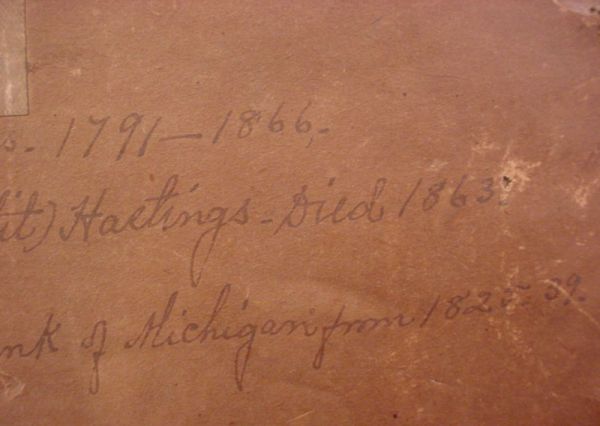 s. 1791–1866.
lit) Hastings – Died 1863.
nk of Michigan from 1825–39.